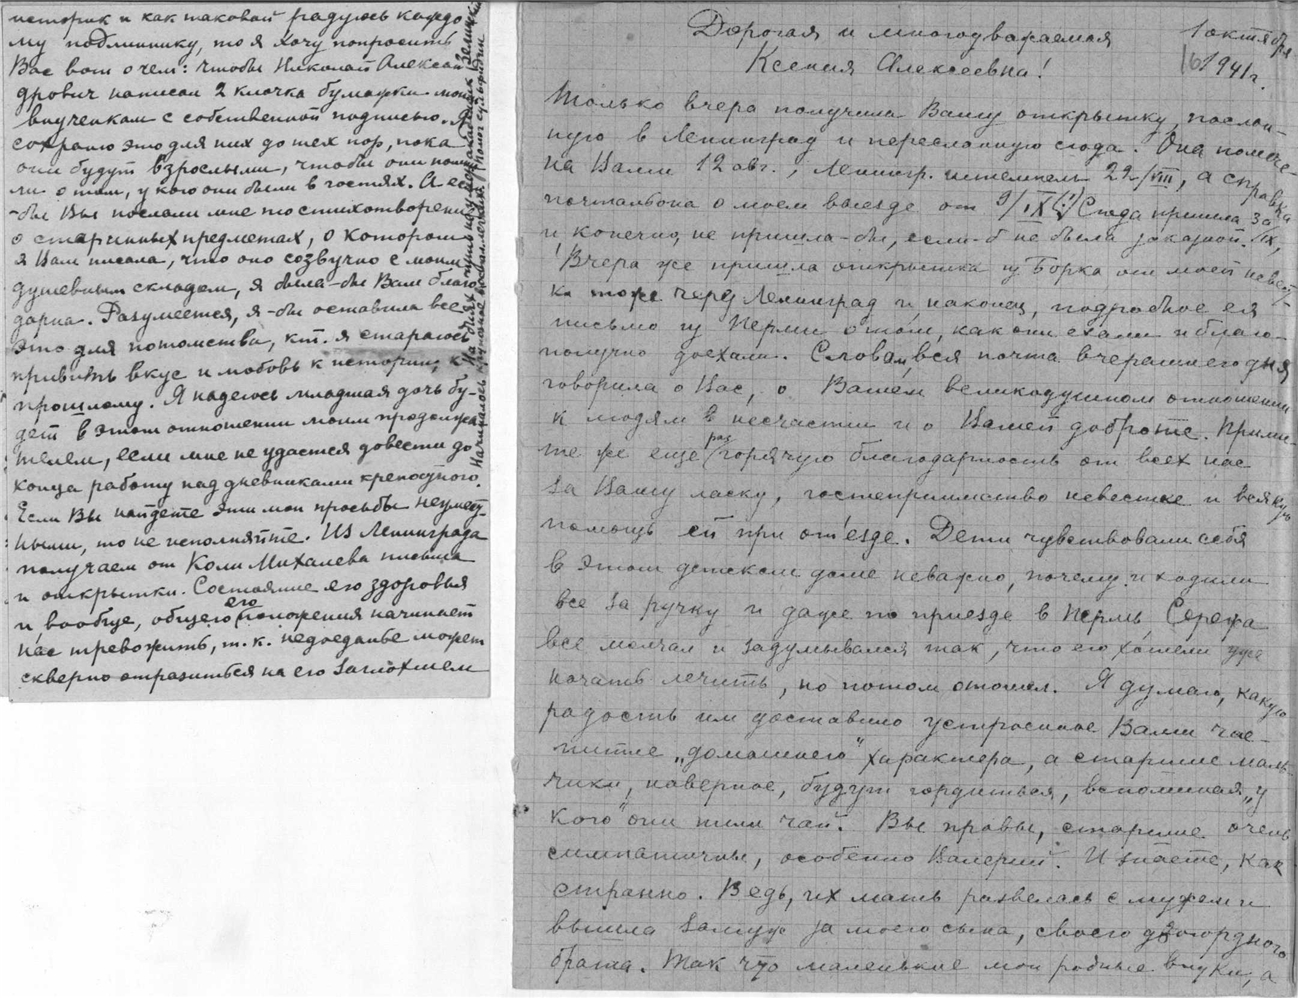 историк и как таковой радуюсь каждо-
му подлиннику, то я хочу попросить
Вас вот о чем: чтобы Николай Алексан-
дрович написал 2 клочка бумажки моим
внученкам с собственной подписью. Я
сохраню это для них до тех пор, пока
они будут взрослыми, чтобы они помни-
ли о том, у кого они были в гостях. А если
-бы Вы послали мне то стихотворение
о старинных предметах, о котором
я Вам писала, что оно созвучно с моим
душевным складом, я была-бы Вам благо-
дарна. Разумеется, я-бы оставила все
это для потомства, кот. я стараюсь
привить вкус и любовь к истории, к
прошлому. Я надеюсь младшая дочь бу-
дет в этом отношении моим продолжа-
телем, если мне не удастся довести до
конца работу над дневниками крепостного.
Если Вы найдете эти мои просьбы неумест-
ными, то не исполняйте. Из Ленинграда
получаем от Коли Михалева письма
и открытки. Состояние его здоровья
и вообще, общего его положения начинает
нас тревожить, т.к. недоеданье может
скверно отразиться на его заглохшем
Дорогая и многоуважаемая
Ксения Алексеевна!
1 октября
16 1941 г.
Только вчера получила Вашу открытку, послан-
ную в Ленинград и пересланную сюда. Она помече-
на Вами 12 авг., Ленингр. штемпель 22/VIII, а справка
почтальона о моем выезде от 9/IX (!) Сюда пришла 30/IX,
и конечно, не пришла-бы, если-б не была заказной.
Вчера же пришла открытка из Борка от моей невест-
ки тоже через Ленинград и, наконец, подробное ея
письмо из Перми о том, как они ехали и благо-
получно доехали. Словом, вся почта вчерашнего дня
говорила о Вас, о Вашем великодушном отношении
к людям в несчастии и о Вашей доброте. Прими-
те же еще раз горячую благодарность от всех нас
за Вашу ласку, гостеприимство невестке и всякую
помощь ей при от'езде. Дети чувствовали себя
в этом детском доме неважно, почему и ходили
все за ручку и даже по приезде в Пермь, Сережа
все молчал и задумывался так, что его хотели уже
начать лечить, но потом отошел. Я думаю, какую
радость им доставило устроенное Вами чае-
питие „домашнего" характера, а старшие маль-
чики, наверное, будут гордиться, вспоминая, „у
кого" они пили чай. Вы правы, старшие очень
симпатичны, особенно Валерий. И знаете, как
странно. Ведь, их мать развелась с мужем и
вышла замуж за моего сына, своего двоюродного
брата. Так что маленькие мои родные внуки, а